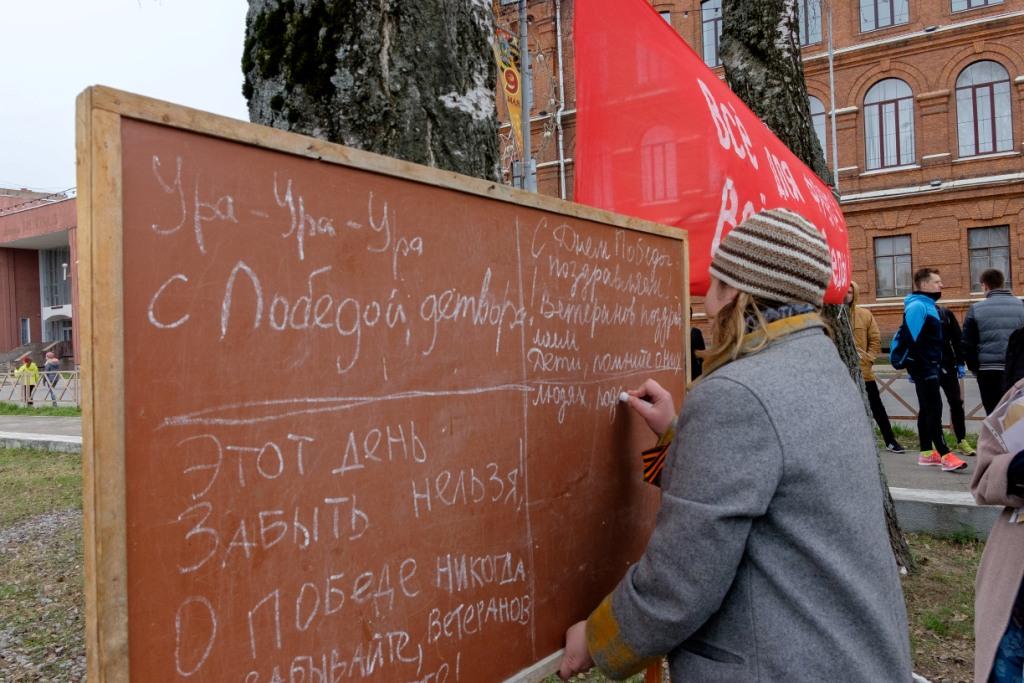 Ура-Ура-Ура
С Победой, детвора,
ЭТОТ ДЕНЬ
ЗАБЫТЬ НЕЛЬЗЯ!
О ПОБЕДЕ НИКОГДА
ЗАБЫВАЙТЕ, ВЕТЕРАНОВ
С Днем Победы
поздравляем!
Ветеранов поздрав
ляем
Дети, помните о них
людях,
9
МАЯ
ВСЁ ДЛЯ